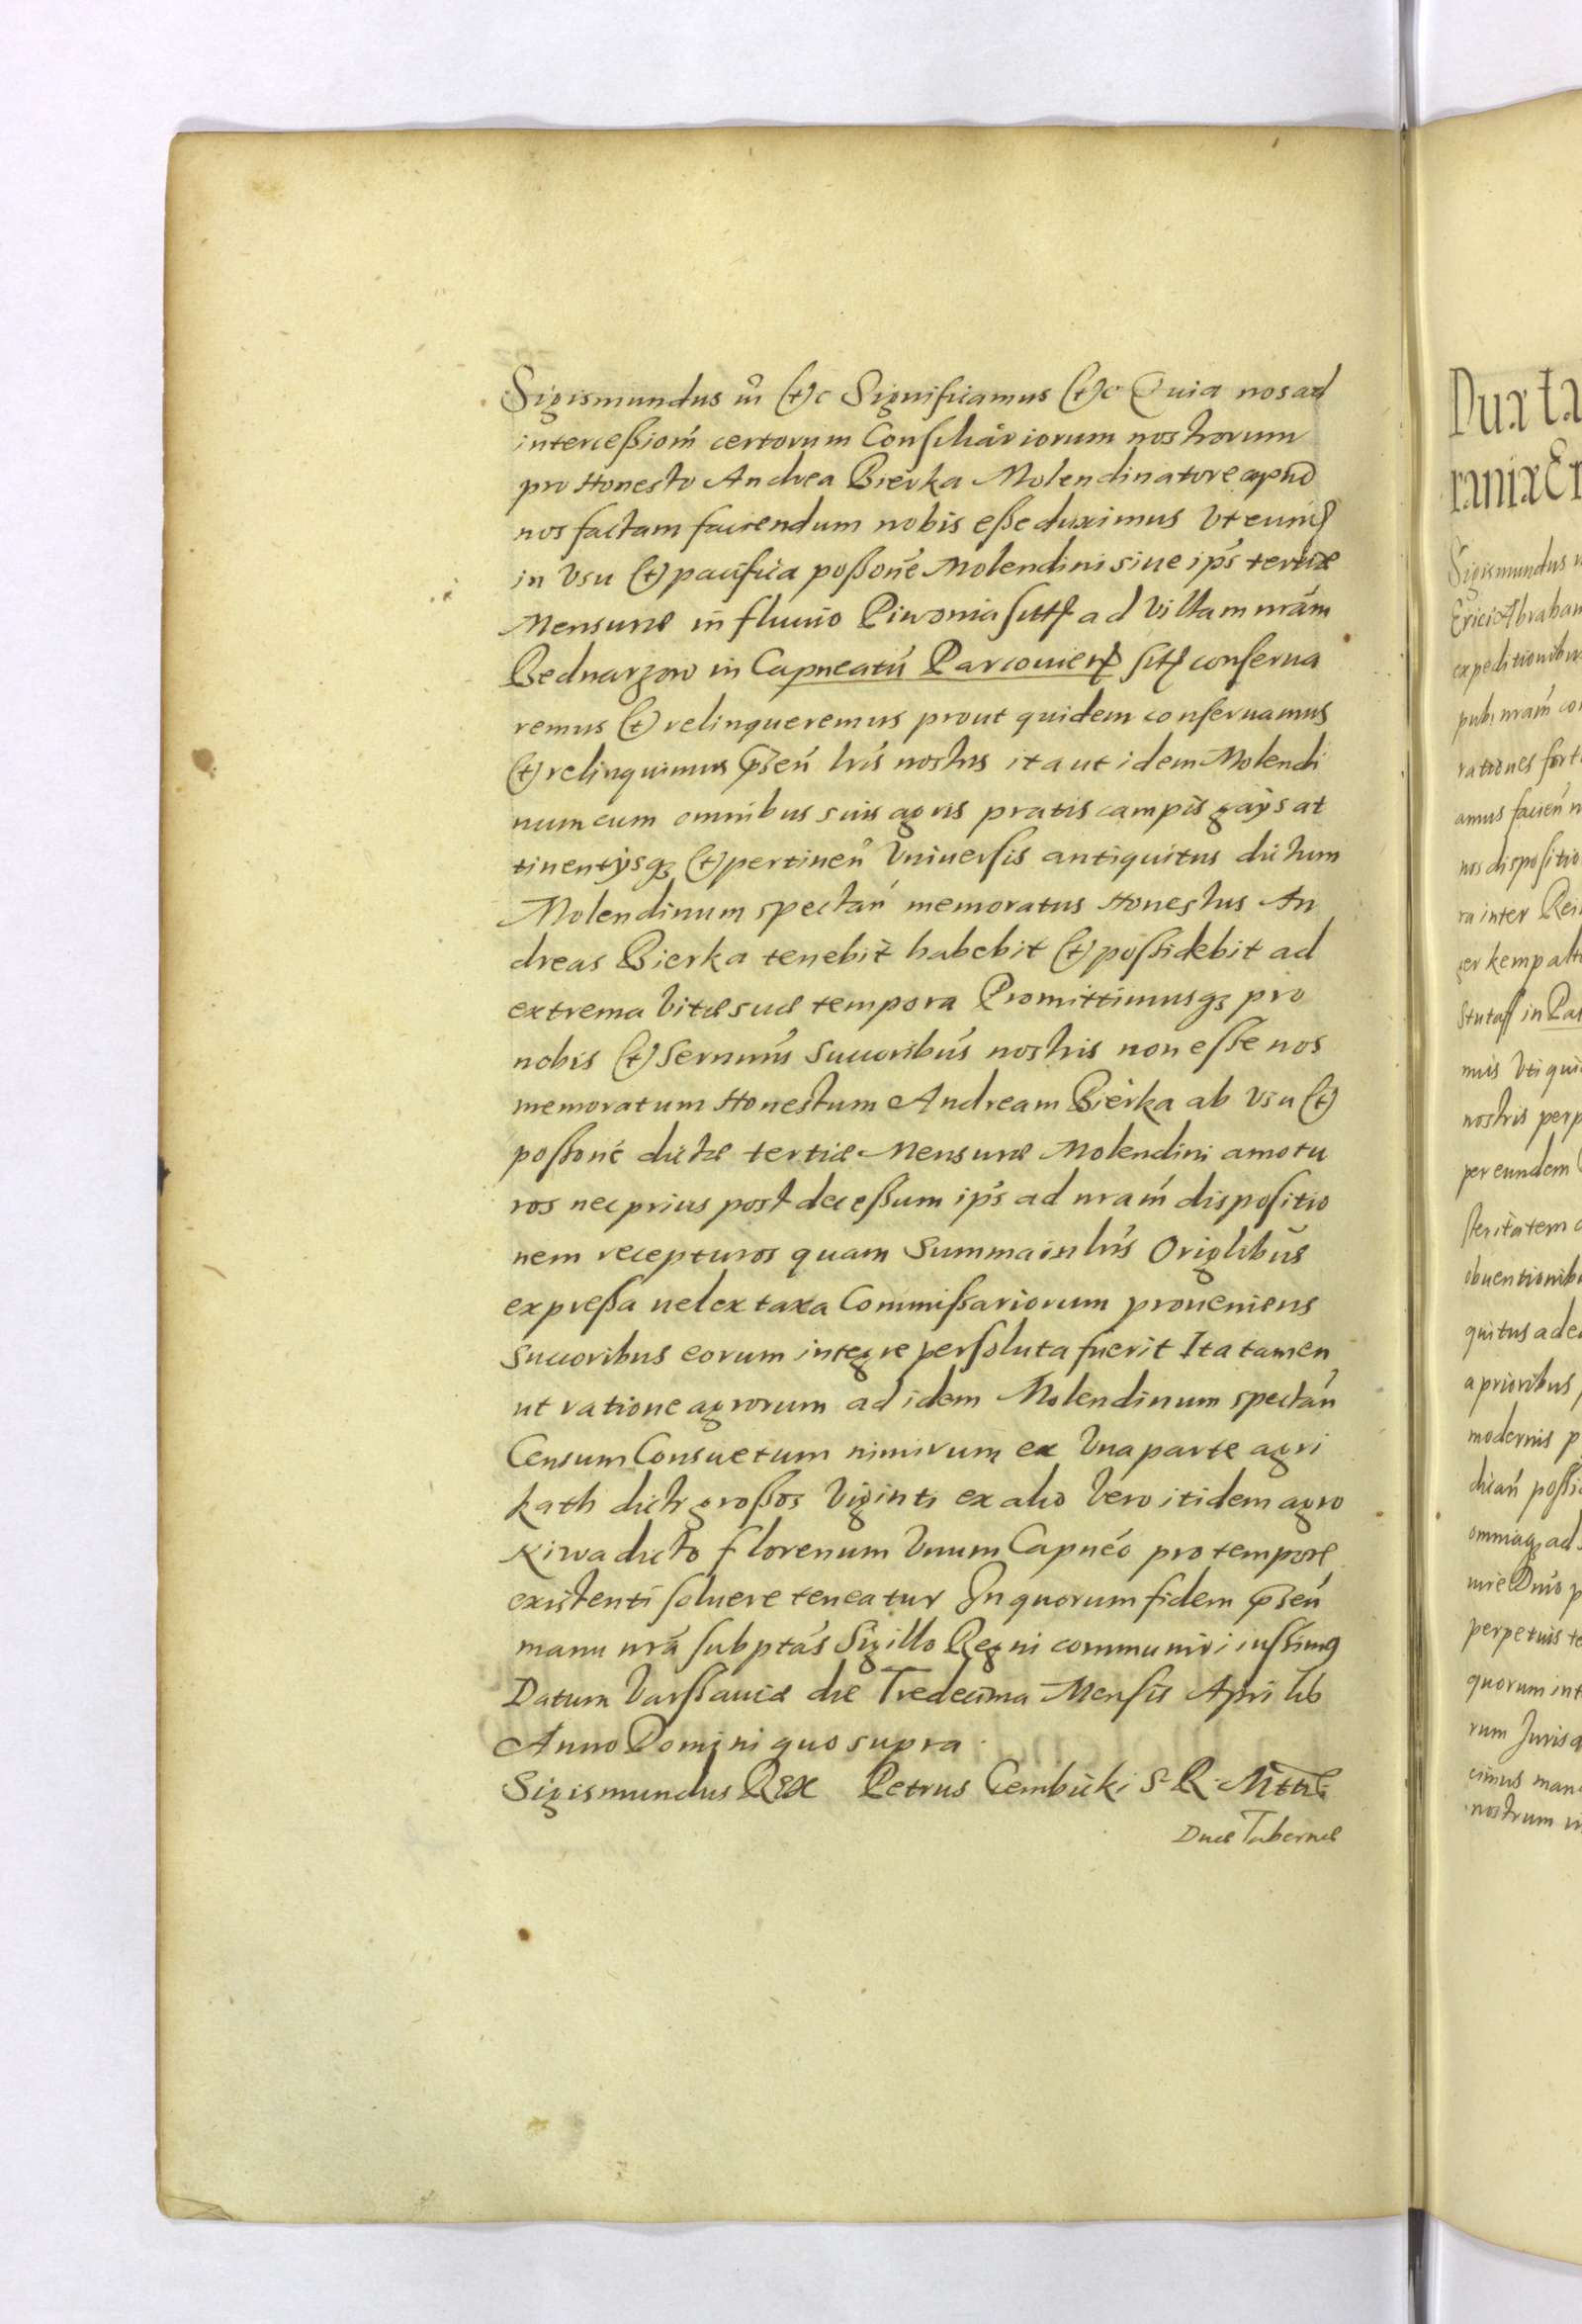 Sigismundus iii (et)c Significamus (et)c Quia nos ad
intercessioém certorum Consiliariorum nostrorum
pro Honesto Andrea Bierka Molendinatore apud
nos factam faciendum nobis esse duximus Vt eund
in Vsu (et) pacifica possoné Molendini siue ips tertiæ
Mensuræ in fluuio Piwonia sitæ ad Villam nram
Bednarzow in Capneatu Parcouien sitæ conserua
remus (et) relinqueremus prout quidem conseruamus
(et) relinquimus psen lris nostris ita ut idem Molendi
num cum omnibus suis agris pratis campis gays at
tinentysq (et) pertinen Vniuersis antiquitus dictum
Molendinum spectan memoratus Honestus An
dreas Bierka tenebit habebit (et) possidebit ad
extrema Vitæ suæ tempora Promittimusq pro
nobis (et) Sernmis Succoribus nostris non esse nos
memoratum Honestum Andream Bierka ab Vsu (et)
possoné dictæ tertiæ Mensuræ Molendini amotu
ros nec prius post decessum ips ad nram dispositio
nem recepturos quam Summa in lris Origlibus
expressa uel ex taxa Commissariorum proueniens
Succoribus eorum integre persoluta fuerit Ita tamen
ut ratione agrorum ad idem Molendinum spectan
Censum Consuetum nimirum ex Vna parte agri
kath dicti grossos Viginti ex alio Vero itidem agro
Kiwa dicto florenum Vnum Capneo pro tempore
existenti soluere teneatur In quorum fidem psen
manu nra subptas Sigillo Regni communiri iussimus
Datum Varssauiæ die Tredecima Mensis Aprilis
Anno Domini quo supra
Sigismundus Rex Petrus Gembicki S R Mttis
Duæ Tabernæ
Dux ta
raniæ Er
Sigismundus
Erici Abraham
expeditionibus
pub nram co
rationes fort
amus facien n
nos dispositio
ra inter Rei
ger kemp alt
Stutaff in Pa
mis Vti qui
nostris perp
per eundem
steritatem
obuentionib
quitus ade
a prioribus
modernis p
dican possi
omniaq ad
mie Dnio p
perpetuis te
quorum int
rum Juris
cimus man
nostrum